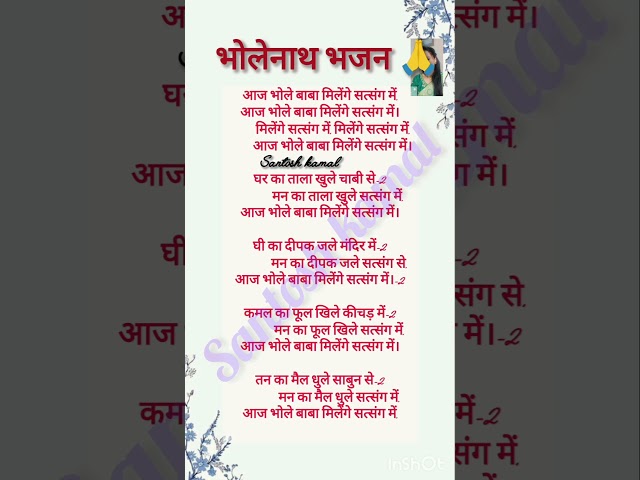 भोलेनाथ भजन
आज भोले बाबा मिलेंगे सत्संग में,
आज भोले बाबा मिलेंगे सत्संग में।
मिलेंगे सत्संग में, मिलेंगे सत्संग में,
आज भोले बाबा मिलेंगे सत्संग में।
Santosh kamal
घर का ताला खुले चाबी से-2
मन का ताला खुले सत्संग में,
आज भोले बाबा मिलेंगे सत्संग में।
घी का दीपक जले मंदिर में-2
मन का दीपक जले सत्संग से,
आज भोले बाबा मिलेंगे सत्संग में।-2
कमल का फूल खिले कीचड़ में-2
मन का फूल खिले सत्संग में,
आज भोले बाबा मिलेंगे सत्संग में।
तन का मैल धुले साबुन से-2
मन का मैल धुले सत्संग में,
आज भोले बाबा मिलेंगे सत्संग में,
Santosh kamal
InShOt